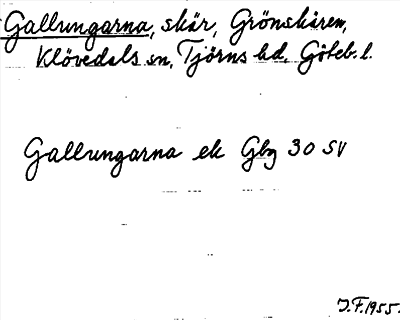 Gallungarna, skär, Grönskären,
Klövedals sn, Tjörns hd, Göteb. l.
Gallungarna ek Gbg 30 SV
J.F. 1955.